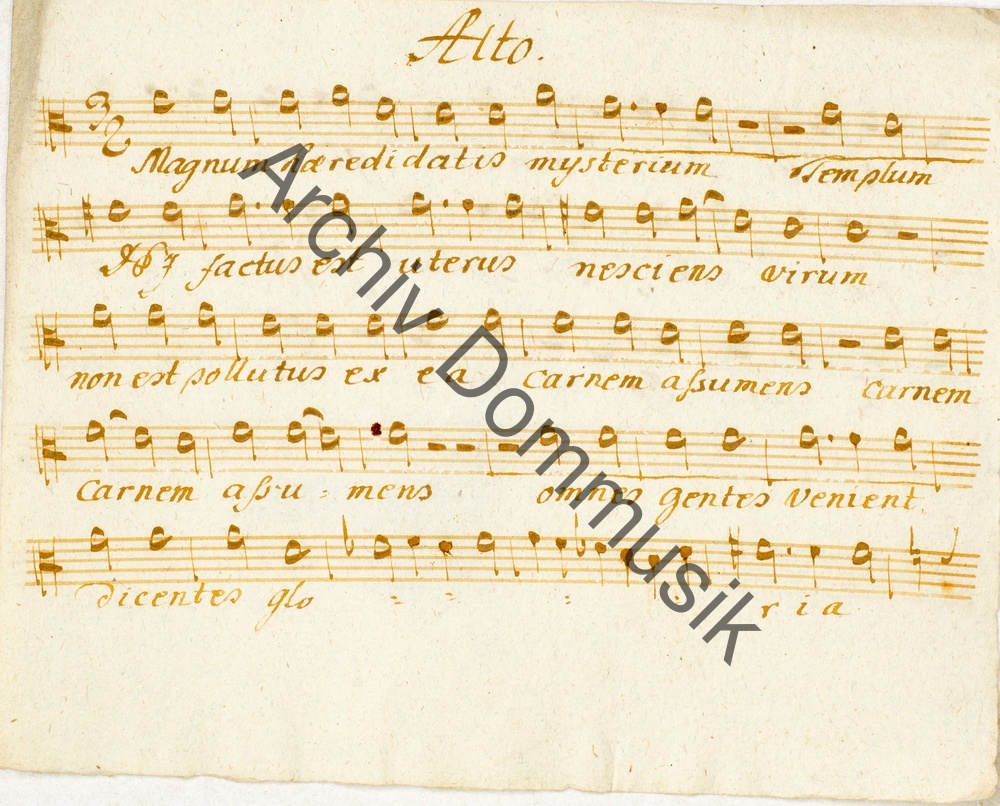 Alto.
Magnum hæredidatis mysterium Templum
factus est uterus nesciens virum
non est pollutus ex ea carnem assumens carnem
carnem assu - mens omnes gentes venient
dicentes glo - - - ria
Archiv Dommusik